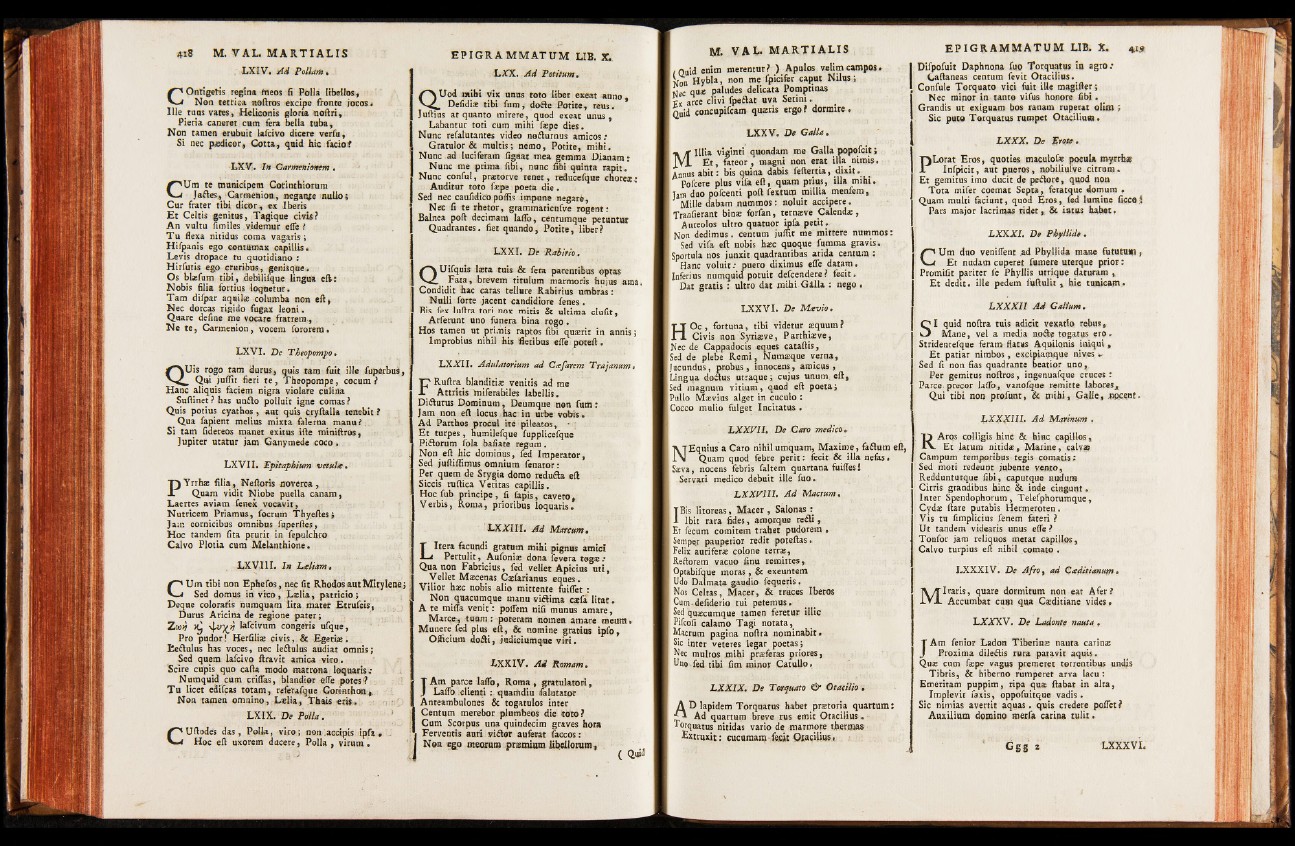 418 M. VAL. MARTIALIS
LXIV. Ad Pollam.
COntigetis regina meos si Polla libellos,
Non tetrica nostros excipe fronte jocos.
Ille tuus vates, Heliconis gloria nostri,
Pieria caneret cum fera bella tuba,
Non tamen erubuit lascivo dicere versu,
Si nec pædicor, Cotta, quid hic facio?
LXV. In Carmenionem.
CUm te municipem Corinthiorum
Jactes, Carmenion, negante nullo;
Cur frater tibi dicor, ex Iberis
Et Celtis genitus, Tagique civis?
An vultu similes videmur esse?
Tu flexa nitidus coma vagaris;
Hispanis ego contumax capillis.
Levis dropace tu quotidiano:
Hirsutis ego cruribus, genisque.
Os blæsum tibi, debilisque lingua est:
Nobis filia fortius loquetur.
Tam dispar aquilæ columba non est,
Nec dorcas rigido fugax leoni.
Quare desine me vocare fratrem,
Ne te, Carmenion, vocem sororem.
LXVI. De Theopompo.
QUis rogo tam durus, quis tam fuit ille superbus,
Qui jussit fieri te, Theopompe, cocum?
Hanc aliquis faciem nigra violare culina
Sustinet? has uncto polluit igne comas?
Quis potius cyathos, aut quis crystalla tenebit?
Qua sapient melius mixta falerna manu?
Si tam sidereos manet exitus iste ministros,
Jupiter utatur jam Ganymede coco.
LXVII. Epitaphium vetulæ.
PYrrhæ filia, Nestoris noverca,
Quam vidit Niobe puella canam,
Laertes aviam senex vocavit,
Nutricem Priamus, socrum Thyestes;
Jam cornicibus omnibus superstes,
Hoc tandem sita prurit in sepulchro
Calvo Plotia cum Melanthione.
LXVIII. In Læliam.
CUm tibi non Ephesos, nec sit Rhodos aut Mitylene;
Sed domus in vico, Lælia, patricio;
Deque coloratis numquam lita mater Etruscis,
Durus Aricina de regione pater;
Ζωὴ ϗ̀ ψυχὴ lascivum congeris usque,
Pro pudor! Hersiliæ civis, & Egeriæ.
Lectulus has voces, nec lectulus audiat omnis;
Sed quem lascivo stravit amica viro.
Scire cupis quo casta modo matrona loquaris:
Numquid cum crissas, blandior esse potes?
Tu licet ediscas totam, referasque Corinthon,
Non tamen omnino, Lælia, Thais eris.
LXIX. De Polla.
CUstodes das, Polla, viro; non accipis ipsa.
Hoc est uxorem ducere, Polla, virum.
EPIGRAMMATUM LIB. X.
LXX. Ad Potitum.
QUod mihi vix unus toto liber exeat anno,
Desidiæ tibi sum, docte Potite, reus.
Justius at quanto mirere, quod exeat unus,
Labantur toti cum mihi sæpe dies.
Nunc resalutantes video nocturnus amicos:
Gratulor & multis; nemo, Potite, mihi.
Nunc ad luciferam signat mea gemma Dianam:
Nunc me prima sibi, nunc sibi quinta rapit.
Nunc consul, prætorve tenet, reducesque choreæ:
Auditur toto sæpe poeta die.
Sed nec causidico possis impune negare,
Nec si te rhetor, grammaticusve rogent:
Balnea post decimam lasso, centumque petuntur
Quadrantes. fiet quando, Potite, liber?
LXXI. De Rabirio.
QUisquis læta tuis & sera parentibus optas
Fata, brevem titulum marmoris hujus ama.
Condidit hac caras tellure Rabirius umbras:
Nulli sorte jacent candidiore senes.
Bis sex lustra tori nox mitis & ultima clusit,
Arserunt uno funera bina rogo.
Hos tamen ut primis raptos sibi quærit in annis;
Improbius nihil his fletibus esse potest.
LXXII. Adulatorium ad Cæsarem Trajanum.
FRustra blanditiæ venitis ad me
Attritis miserabiles labellis.
Dicturus Dominum, Deumque non sum:
Jam non est locus hac in urbe vobis.
Ad Parthos procul ite pileatos,
Et turpes, humilesque supplicesque
Pictorum sola basiate regum.
Non est hic dominus, sed Imperator,
Sed justissimus omnium senator:
Per quem de Stygia domo reducta est
Siccis rustica Veritas capillis.
Hoc sub principe, si sapis, caveto,
Verbis, Roma, prioribus loquaris.
LXXIII. Ad Marcum.
LItera facundi gratum mihi pignus amici
Pertulit, Ausoniæ dona severa togæ:
Qua non Fabricius, sed vellet Apicius uti,
Vellet Mæcenas Cæsarianus eques.
Vilior hæc nobis alio mittente fuisset:
Non quacumque manu victima cæsa litat.
A te missa venit: possem nisi munus amare,
Marce, tuum: poteram nomen amare meum.
Munere sed plus est, & nomine gratius ipso,
Officium docti, judiciumque viri.
LXXIV. Ad Romam.
JAm parce lasso, Roma, gratulatori,
Lasso clienti: quamdiu salutator
Anteambulones & togatulos inter
Centum merebor plumbeos die toto?
Cum Scorpus una quindecim graves hora
Ferventis auri victor auferat saccos:
Non ego meorum præmium libellorum,
( Quid
M. VAL. MARTIALIS
(Quid enim merentur?) Apulos velim campos.
Non Hybla, non me spicifer caput Nilus;
Nec quæ paludes delicata Pomptinas
Ex arce clivi spectat uva Setini.
Quid concupiscam quæris ergo? dormire.
LXXV. De Galla.
MIllia viginti quondam me Galla poposcit;
Et, fateor, magni non erat illa nimis.
Annus abit: bis quina dabis sestertia, dixit.
Poscere plus visa est, quam prius, illa mihi.
Jam duo poscenti post sextum millia mensem,
Mille dabam nummos: noluit accipere.
Transierant binæ forsan, ternæve Calendæ,
Aureolos ultro quatuor ipsa petit.
Non dedimus. centum jussit me mittere nummos:
Sed visa est nobis hæc quoque summa gravis.
Sportula nos junxit quadrantibus arida centum:
Hanc voluit: puero diximus esse datam.
Inferius numquid potuit descendere? fecit.
Dat gratis: ultro dat mihi Galla: nego.
LXXVI. De Mævio.
HOc, fortuna, tibi videtur æquum?
Civis non Syriæve, Parthiæve,
Nec de Cappadocis eques catastis,
Sed de plebe Remi, Numæque verna,
Jucundus, probus, innocens, amicus,
Lingua doctus utraque; cujus unum est,
Sed magnum vitium, quod est poeta;
Pullo Mævius alget in cuculo:
Cocco mulio fulget Incitatus.
LXXVII. De Caro medico.
NEquius a Caro nihil umquam, Maxime, factum est,
Quam quod febre perit: fecit & illa nefas.
Sæva, nocens febris saltem quartana fuisses!
Servari medico debuit ille suo.
LXXVIII. Ad Macrum.
IBis litoreas, Macer, Salonas:
Ibit rara fides, amorque recti,
Et secum comitem trahet pudorem,
Semper pauperior redit potestas.
Felix auriferæ colone terræ,
Rectorem vacuo sinu remittes,
Optabisque moras, & exeuntem
Udo Dalmata gaudio sequeris.
Nos Celtas, Macer, & truces Iberos
Cum desiderio tui petemus.
Sed quæcumque tamen feretur illic
Piscosi calamo Tagi notata,
Macrum pagina nostra nominabit.
Sic inter veteres legar poetas;
Nec multros mihi præferas priores,
Uno sed tibi sim minor Catullo.
LXXIX. De Torquato & Otacilio.
AD lapidem Torquatus habet prætoria quartum:
Ad quartum breve rus emit Otacilius.
Torquatus nitidas vario de marmore thermas
Extruxit: cucumam fecit Otacilius.
EPIGRAMMATUM LIB. X. 419
Disposuit Daphnona suo Torquatus in agro:
Castaneas centum sevit Otacilius.
Consule Torquato vici fuit ille magister;
Nec minor in tanto visus honore sibi.
Grandis ut exiguam bos ranam ruperat olim;
Sic puto Torquatus rumpet Otacilium.
LXXX. De Erote.
PLorat Eros, quoties maculosæ pocula myrrhæ
Inspicit, aut pueros, nobiliusve citrum.
Et gemitus imo ducit de pectore, quod non
Tota miser coemat Septa, feratque domum.
Quam multi faciunt, quod Eros, sed lumine sicco!
Pars major lacrimas ridet, & intus habet.
LXXXI. De Phyllide.
CUm duo venissent ad Phyllida mane fututum,
Et nudam cuperet sumere uterque prior:
Promisit pariter se Phyllis utrique daturam,
Et dedit. ille pedem sustulit, hic tunicam.
LXXXII Ad Gallum.
SI quid nostra tuis adicit vexatio rebus,
Mane, vel a media nocte togatus ero.
Stridentesque feram flatus Aquilonis iniqui,
Et patiar nimbos, excipiamque nives.
Sed si non fias quadrante beatior uno,
Per gemitus nostros, ingenuasque cruces:
Parce precor lasso, vanosque remitte labores,
Qui tibi non prosunt, & mihi, Galle, nocent.
LXXXIII. Ad Marinum.
RAros colligis hinc & hinc capillos,
Et latum nitidæ, Marine, calvæ
Campum temporibus tegis comatis:
Sed moti redeunt jubente vento,
Reddunturque sibi, caputque nudum
Cirris grandibus hinc & inde cingunt.
Inter Spendophorum, Telesphorumque,
Cydæ stare putabis Hermeroten.
Vis tu simplicius senem fateri?
Ut tandem videaris unus esse?
Tonsor jam reliquos metat capillos,
Calvo turpius est nihil comato.
LXXXIV. De Afro, ad Cæditianum.
MIraris, quare dormitum non eat Afer?
Accumbat cum qua Cæditiane vides.
LXXXV. De Ladonte nauta.
JAm senior Ladon Tiberinæ nauta carinæ
Proxima dilectis rura paravit aquis.
Quæ cum sæpe vagus premeret torrentibus undis
Tibris, & hiberno rumperet arva lacu:
Emeritam puppim, ripa quæ stabat in alta,
Implevit saxis, opposuitque vadis.
Sic nimias avertit aquas. quis credere posset?
Auxilium domino mersa carina tulit.
Ggg 2 LXXXVI.